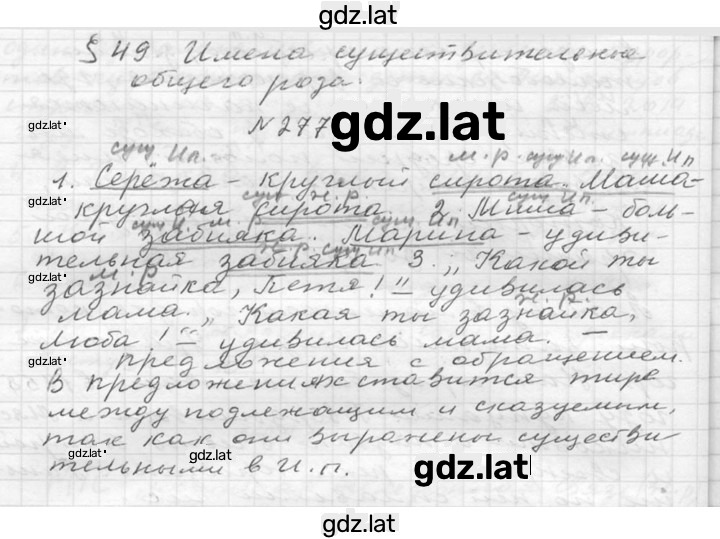 gdz.lat
§ 49 Имена существительные
общего рода.
gdz.lat
N 277 gdz.lat
сущ. Им. м.р. сущ. Ип. сущ. Ип
1. Серёжа - круглый сирота. Маша-
gdz.lat
круглая сирота. 2. Миша - боль-
шой забияка. Марина - удиви-
тельная забияка 3. „Какой ты
gdz.lat
м.р.
зазнайка, Петя!" удивилась
ж.р.
мама. „Какая ты зазнайка,
Люба!" удивилась мама. —
gdz.lat
предложения с обращением.
В предложениях ставится тире
между подлежащим и сказуемым,
так как они выражены существи-
gdz.lat gdz.lat
тельными в И.п.
gdz.lat
gdz.lat